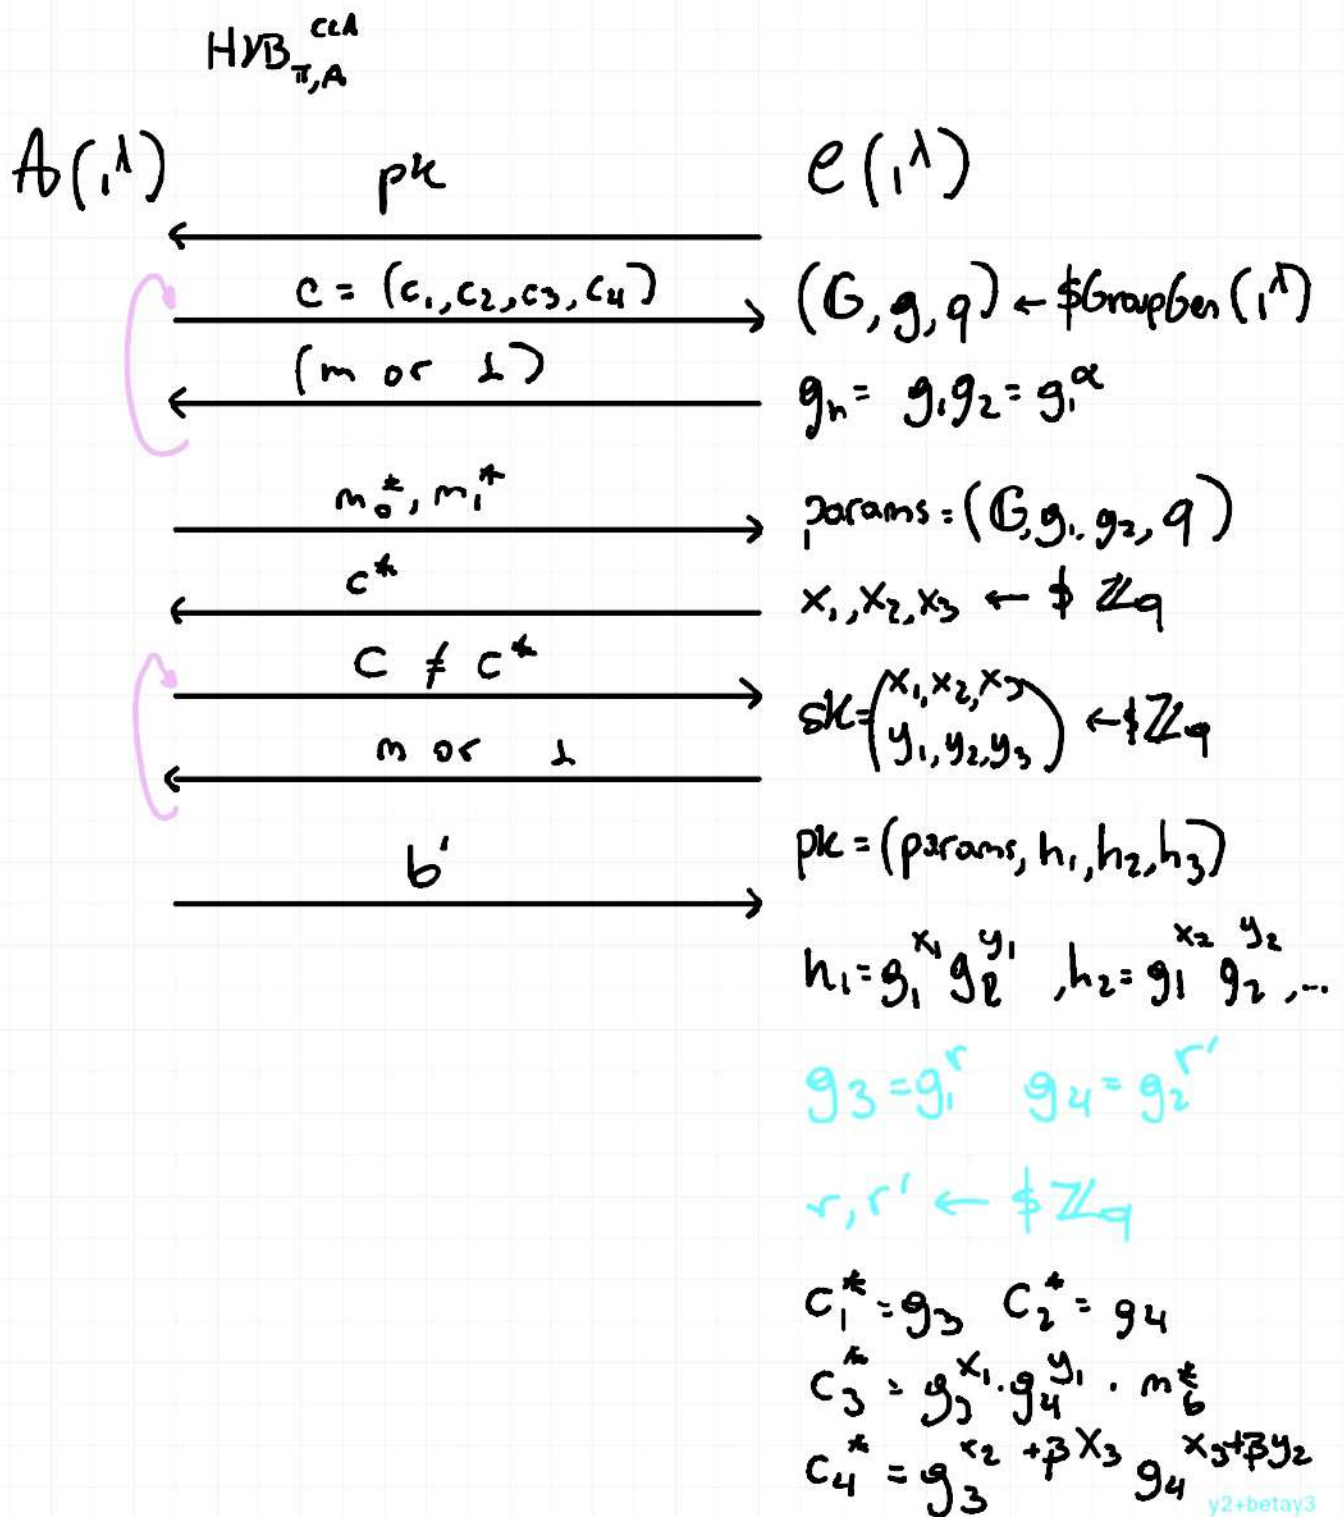 HYB_{π,A}^{CCA}
A(1^λ)
pk
C(1^λ)
c = (c_1, c_2, c_3, c_4)
(G, g, q) ← $GroupGen(1^λ)
(m or ⊥)
g_n = g_1 g_2 = g_1^α
m_0^*, m_1^*
params = (G, g_1, g_2, q)
c^*
x_1, x_2, x_3 ← $ ℤ_q
C ≠ c^*
sk = (x_1, x_2, x_3
y_1, y_2, y_3) ← $ℤ_q
m or ⊥
pk = (params, h_1, h_2, h_3)
b'
h_1 = g_1^{x_1} g_2^{y_1} , h_2 = g_1^{x_2} g_2^{y_2} , ...
g_3 = g_1^r g_4 = g_2^{r'}
r, r' ← $ ℤ_q
c_1^* = g_3 c_2^* = g_4
c_3^* = g_3^{x_1} · g_4^{y_1} · m_b^*
c_4^* = g_3^{x_2 + βx_3} g_4^{x_3 + βy_2}
y2+betay3